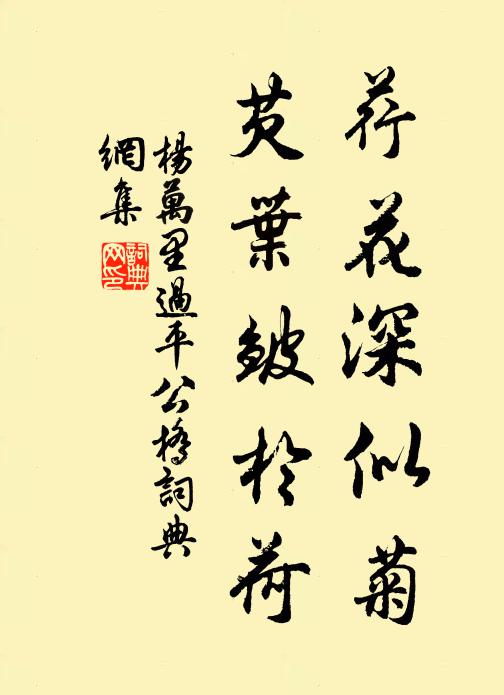 荇花深似菊
芡葉皺於荷
楊萬里過平公橋詞典
網集
詞典
网印